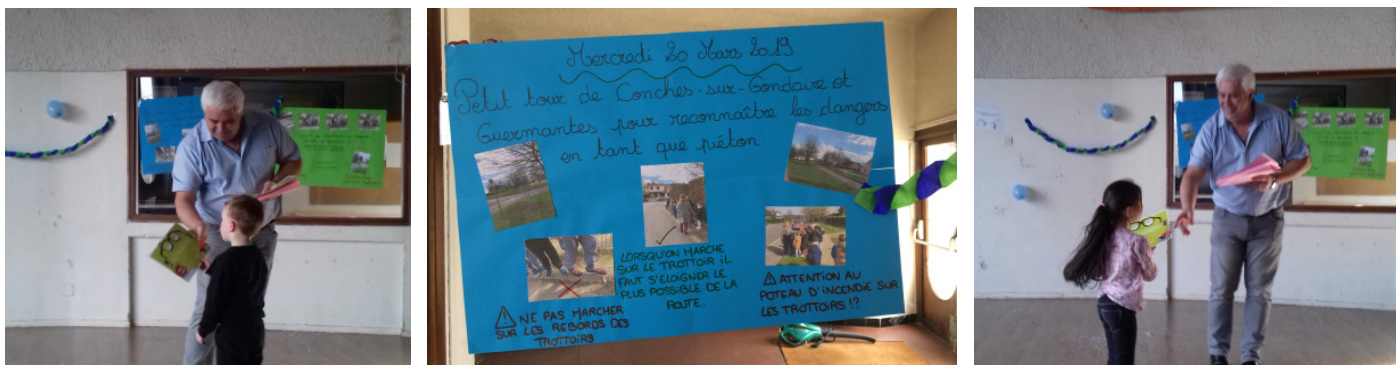 Mercredi 20 Mars 2019
Petit tour de Conches-sur-Gondoire et
Guermantes pour reconnaître les dangers
en tant que piéton.
⚠ NE PAS MARCHER
SUR LES REBORDS DES
TROTTOIRS
LORSQU'ON MARCHE
SUR LE TROTTOIR IL
FAUT S'ELOIGNER LE
PLUS POSSIBLE DE LA
ROUTE.
⚠ ATTENTION AU
POTEAU D'INCENDIE SUR
LES TROTTOIRS !?